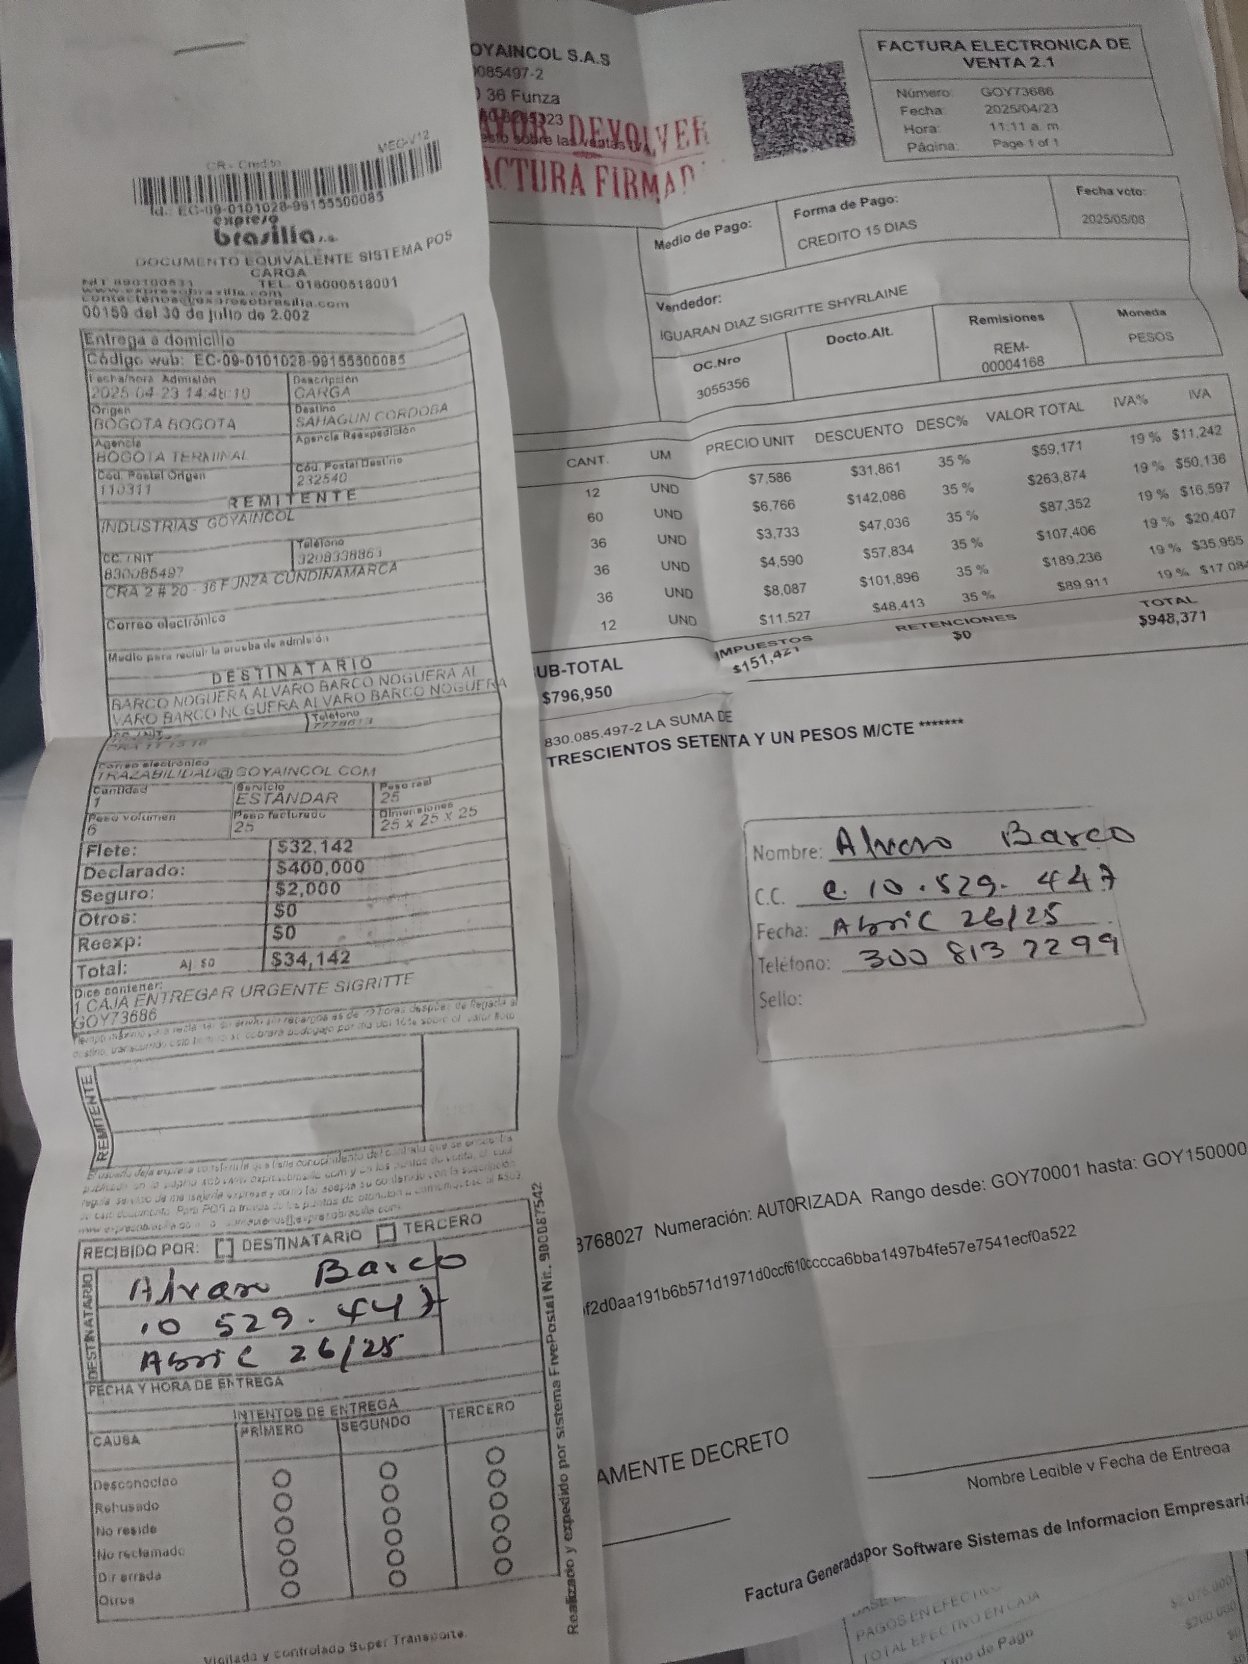 CR - Credito
MEC-V12
Id.: EC-09-0101028-99155500085
expreso
brasilia s.a.
DOCUMENTO EQUIVALENTE SISTEMA POS
CARGA
NIT 890100531 TEL. 018000518001
www.expresobrasilia.com
contactenos@expresobrasilia.com
00159 del 30 de julio de 2.002
Entrega a domicilio
Código web: EC-09-0101028-99155500085
Fecha/hora Admisión Descripción
2025-04-23 14:48:10 CARGA
Origen Destino
BOGOTA BOGOTA SAHAGUN CORDOBA
Agencia Agencia Reexpedición
BOGOTA TERMINAL
Cód. Postal Origen Cód. Postal Destino
110311 232540
REMITENTE
INDUSTRIAS GOYAINCOL
CC. / NIT Teléfono
830085497 3208338861
CRA 2 # 20 - 36 FUNZA CUNDINAMARCA
Correo electrónico
Medio para recibir la prueba de admisión
DESTINATARIO
BARCO NOGUERA ALVARO BARCO NOGUERA AL
VARO BARCO NOGUERA ALVARO BARCO NOGUERA
Teléfono
Correo electrónico
TRAZABILIDAD@GOYAINCOL.COM
Cantidad Servicio Peso real
1 ESTANDAR 25
Peso volumen Peso facturado Dimensiones
6 25 25 x 25 x 25
Flete: $32,142
Declarado: $400,000
Seguro: $2,000
Otros: $0
Reexp: $0
Total: Aj. $0 $34,142
Dice contener:
1 CAJA ENTREGAR URGENTE SIGRITTE
GOY73686
REMITENTE
RECIBIDO POR: [ ] DESTINATARIO [ ] TERCERO
DESTINATARIO
Alvaro Barco
10 529.447
Abril 26/25
FECHA Y HORA DE ENTREGA
INTENTOS DE ENTREGA
CAUSA PRIMERO SEGUNDO TERCERO
Desconocido
Rehusado
No reside
No reclamado
Dir errada
Otros
Realizado y expedido por sistema FivePostal Nit. 900087542
Vigilada y controlado Super Transporte.
OYAINCOL S.A.S
0085497-2
36 Funza
DEVOLVER
ACTURA FIRMAD
FACTURA ELECTRONICA DE
VENTA 2.1
Número: GOY73686
Fecha: 2025/04/23
Hora: 11:11 a. m
Página: Page 1 of 1
Medio de Pago:
Forma de Pago:
CREDITO 15 DIAS
Fecha vcto:
2025/05/08
Vendedor:
IGUARAN DIAZ SIGRITTE SHYRLAINE
OC.Nro Docto.Alt. Remisiones Moneda
3055356 REM- PESOS
00004168
CANT. UM PRECIO UNIT DESCUENTO DESC% VALOR TOTAL IVA% IVA
12 UND $7,586 $31,861 35 % $59,171 19 % $11,242
60 UND $6,766 $142,086 35 % $263,874 19 % $50,136
36 UND $3,733 $47,036 35 % $87,352 19 % $16,597
36 UND $4,590 $57,834 35 % $107,406 19 % $20,407
36 UND $8,087 $101,896 35 % $189,236 19 % $35,955
12 UND $11,527 $48,413 35 % $89,911 19 % $17,084
UB-TOTAL IMPUESTOS RETENCIONES TOTAL
$796,950 $151,421 $0 $948,371
830.085.497-2 LA SUMA DE
TRESCIENTOS SETENTA Y UN PESOS M/CTE *******
Nombre: Alvaro Barco
C.C. c. 10.529.447
Fecha: Abril 26/25
Teléfono: 300 813 7299
Sello:
3768027 Numeración: AUTORIZADA Rango desde: GOY70001 hasta: GOY150000
f2d0aa191b6b571d1971d0ccf610cccca6bba1497b4fe57e7541ecf0a522
AMENTE DECRETO
Nombre Legible y Fecha de Entrega
Factura Generada por Software Sistemas de Informacion Empresaria
PAGOS EN EFEC
TOTAL EFECTIVO EN CAJA
Tipo de Pago